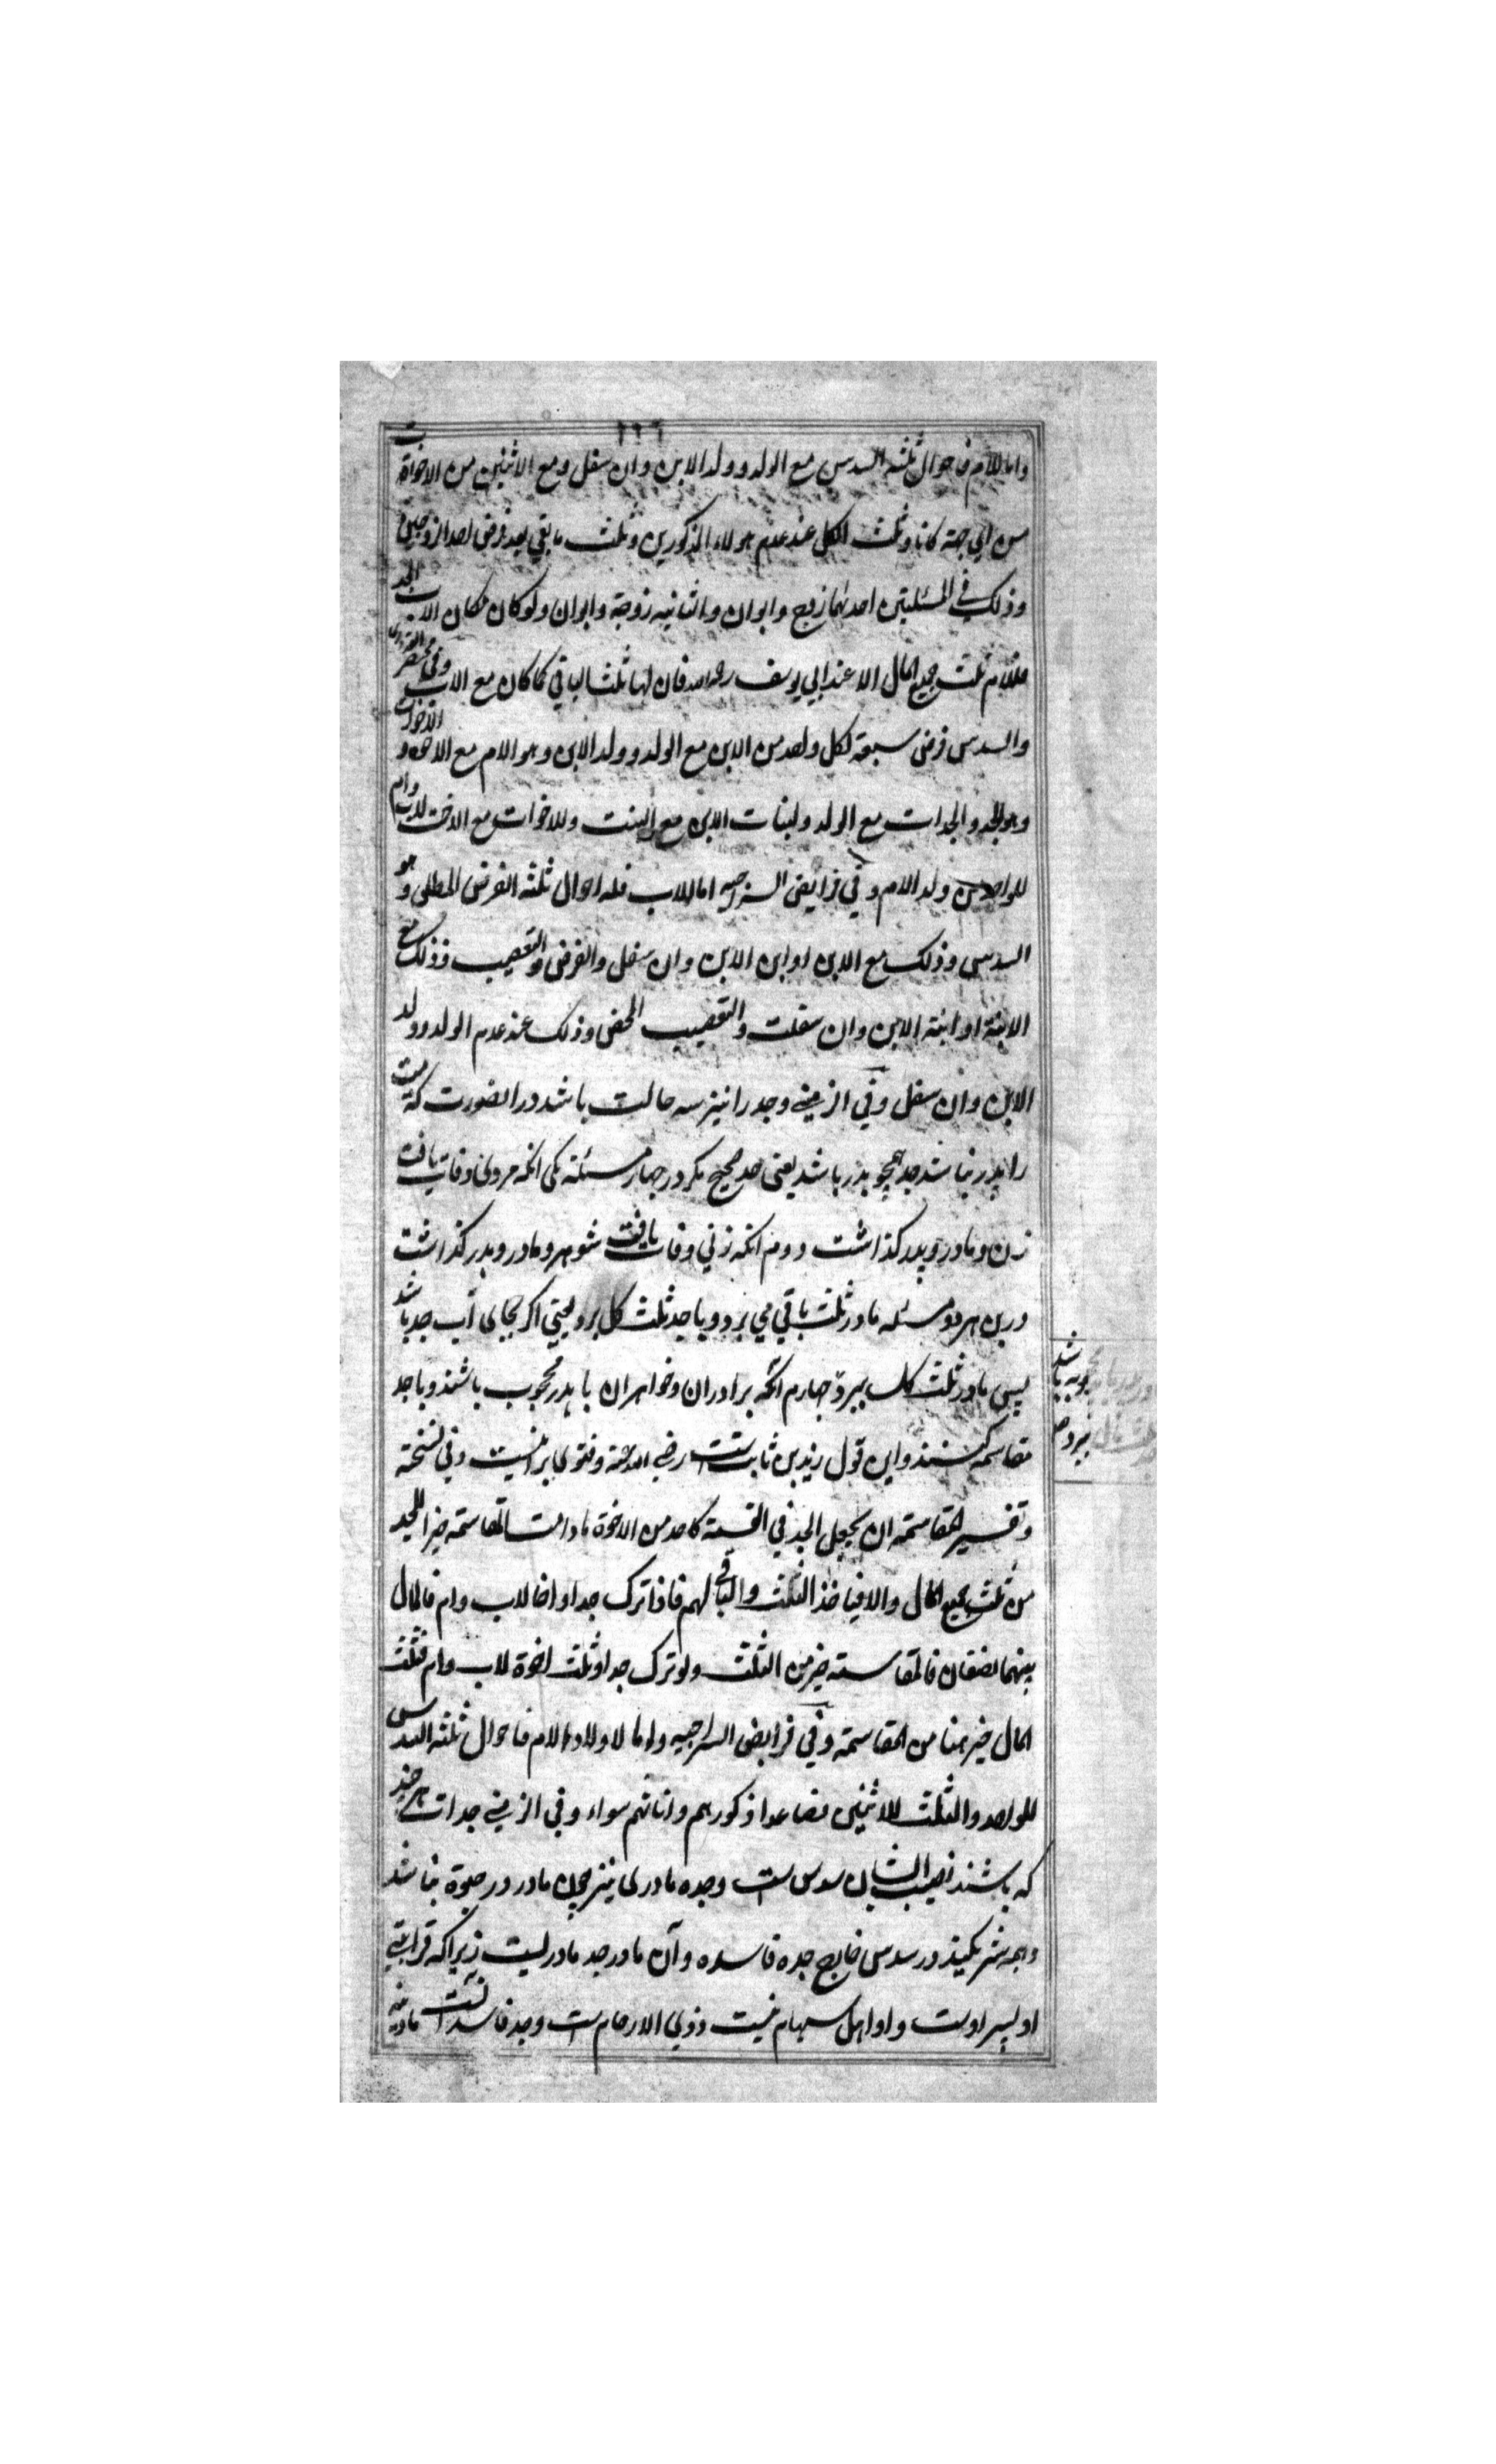 واما للام فاحوال ثلثه السدس مع الولد وولد الابن وان سفل ومع الاثنين من الاخوات
من اي جهة كانا وثلث الكل عند عدم هولاء المذكورين وثلث ما بقي بعد فرض احد الزوجين
وذلك في المسئلتين احدىهما زوج وابوان والثانيه زوجة وابوان ولو كان مكان الاب الجد
فللام ثلث جميع المال الا عند ابي يوسف رحمه الله فان لها ثلث الباقي كما كان مع الاب وفي مختصر
والسدس فرض سبعة لكل واحد من الابن مع الولد وولد الابن وهو الام مع الاخوه و الاخوات
وهو للجد والجدات مع الولد ولبنات الابن مع البنت وللاخوات مع الاخت للاب وام
للواحد من ولد الام وفي فرايض السراجيه اما للاب فله احوال ثلثه الفرض المطلق وهو
السدس وذلك مع الابن او ابن الابن وان سفل والفرض والتعصيب وذلك مع
الابنة او ابنة الابن وان سفلت والتعصيب المحض وذلك عند عدم الولد وولد
الابن وان سفل وفي وجد را نيز سه حالت باشد در انصورت كه ميت
را پدر نباشد جد همچو پدر باشد يعنى جد صحيح مكر در چهار مسئله يكى انكه مردى وفات يافت
زن ومادر وپدر كذاشت دوم انكه زني وفات يافت شوهر ومادر وپدر كذاشت
درين هر دو مسئله مادر ثلث باقي مي برد وبا جد ثلث كل برد يعني اكر بجاى اب جد باشد
پس مادر ثلث كل ببرد چهارم انكه برادران وخواهران با پدر محجوب باشند وبا جد
مقاسمه كنند واين قول زيد بن ثابت است رضي الله عنه وفتوى برينست وفي نسخة
وتفسير المقاسمة ان يجعل الجد في القسمة كاحد من الاخوة ما دامت المقاسمة خير اللجد
من ثلث جميع المال والا فياخذ الثلث والباقي لهم فاذا ترك جدا واخا لاب وام فالمال
بينهما نصفان فالمقاسمة خير من الثلث ولو ترك جدا وثلث اخوة لاب وام فثلث
المال خير هنا من المقاسمة وفي فرايض السراجيه واما لاولاد الام فاحوال ثلثه السدس
للواحد والثلث للاثنين فصاعدا ذكورهم واناثهم سواء وفي جدات هر چند
كه باشند نصيب ايشان سدس است وجده مادرى نيز چون مادر در حيوة نباشد
وهمه شريكند در سدس خارج جده فاسده وآن مادر جد مادريست زيرا كه قرابتي
او پسر اوست واو اهل سهام نيست ذوي الارحام است وجد فاسد انست